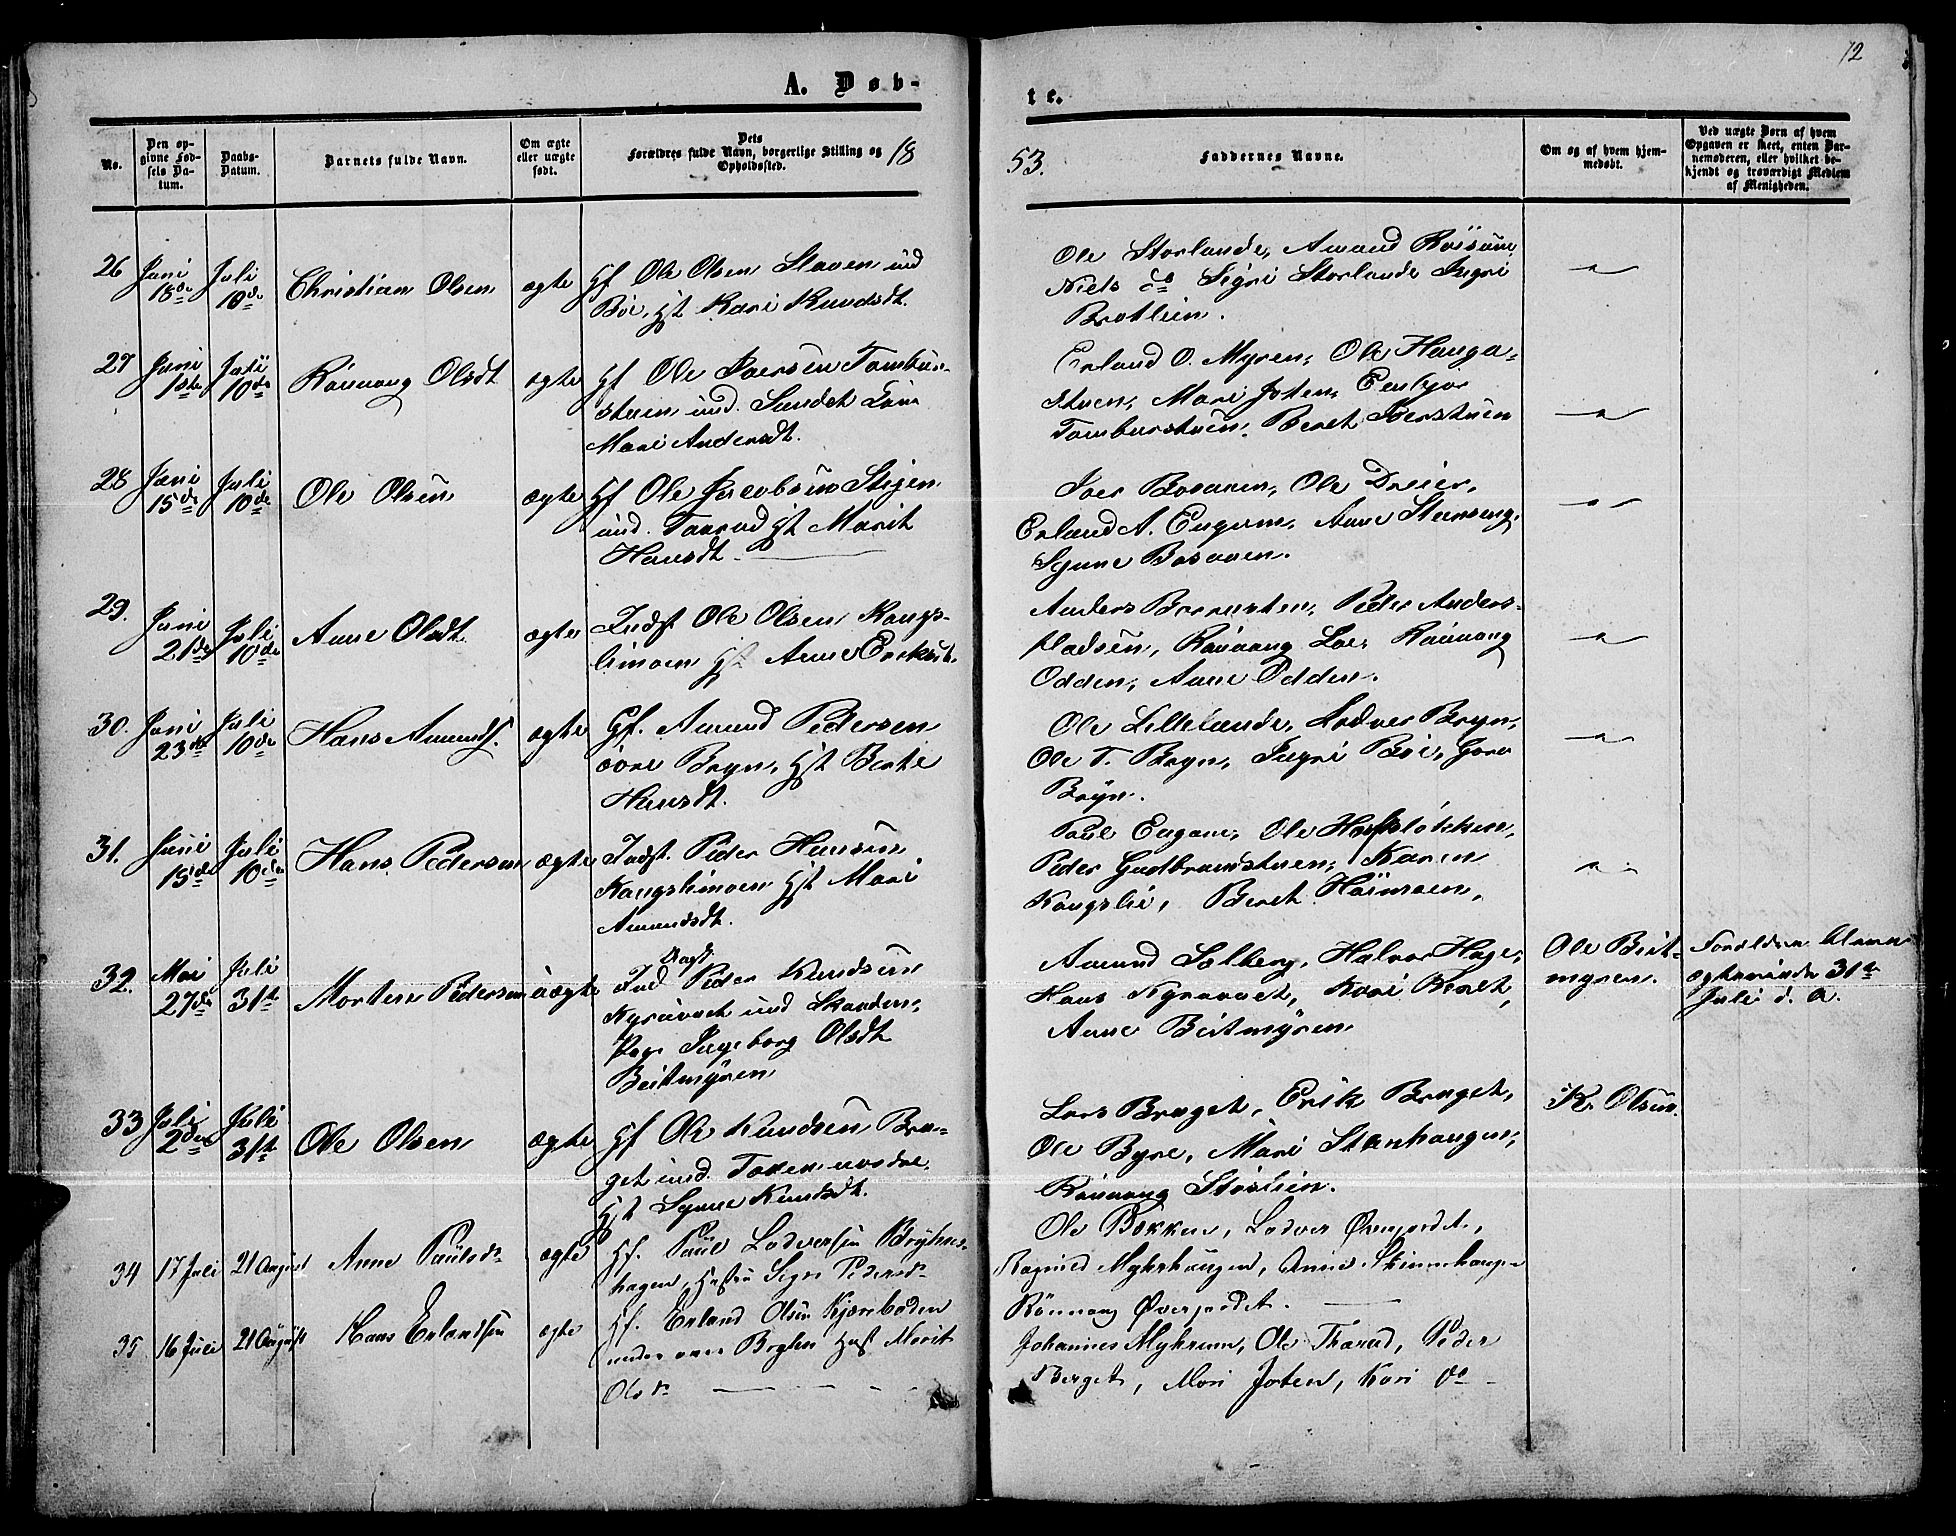 12
A. Døb-
te.
No.
Den opgivne Fødsels Datum.
Daabs-Datum.
Barnets fulde Navn.
Om ægte eller uægte født.
Dets Forældres fulde Navn, borgerlige Stilling og Opholdssted.
18
53.
Faddernes Navne.
Om og af hvem hjemmedøbt.
Ved uægte Børn af hvem Opgaven er skeet, enten Barnemoderen, eller hvilket bekjendt og troværdigt Medlem af Menigheden.
26 Juni 18de Juli 10de Christian Olsen ægte Gf Ole Olsen Slaaen und
Böe, Hst Kari Knudsdt.
Ole Storlande, Amund Röisum,
Niels do Sigri Storlande Ingri
Brotlien.
27 Juni 1ste Juli 10de Rönnaug Olsdt ægte Hf Ole Iversen Tambur-
stuen und. Sundet
Mari Andersdt.
Erland O. Myren, Ole Hauga-
stuen, Mari Joten,
Tamburstuen, Beret Iverstuen
28 Juni 15de Juli 10de Ole Olsen ægte Hf Ole Jacobsen Stigen
und. Taarud Hst Marit
Hansdt.
Iver Bosaaen, Ole Dreier,
Erland A. Engum, Anne Steinseng,
Synne Bosaaen.
29. Juni 21de Juli 10de Anne Olsdt ægte Indst Ole Olsen Kongs-
limoen Hst Anne Eriksdt.
Anders, Peder Anders-
pladsen, Rönnaug Loe, Rönnaug
Odden, Anne Odden.
30. Juni 23de Juli 10de Hans Amunds. ægte Gf. Amund Pedersen
övre Bryn, Hst Berte
Hansdt.
Ole Lillelande, Lodver Bryn,
Ole T. Bryn, Ingri Böe, Goro
Bryn.
31. Juni 15de Juli 10de Hans Pedersen ægte Indst. Peder Hansen
Kongslimoen Hst Mari
Amundsdt.
Paul Engom, Ole Hofslökken,
Peder Gudbrandstuen, Karen
Kongslie, Beret Höimoen,
32. Mai 27de Juli 31te Morten Pedersen uægte Ind Peder Knudsen
und Skarden,
Pige Ingeborg Olsdt
Beitmyren
Amund Solberg, Halvor Hage,
Hans, Kari Beret,
Anne Beitmyren
Ole Beit-
myren.
Forældrene bleve
ægteviede 31te
Juli d. A.
33 Juli 2den Juli 31te Ole Olsen ægte Hf Ole Knudsen Bra-
get und.
Hst Synne Knudsdt.
Lars Braget, Erik Braget,
Ole Byre, Mari Stenhaugen,
Rönnaug Störlien.
K. Olsen.
34 17 Juli 21 August Anne Paulsdr ægte Hf. Paul Lodversen Bryhns-
hagen, Hustru Signe Pedersdr
Ole Bækken, Lodver Øvregjordet,
Ragnild Myhrhaugen, Anne Skinnehaugen
Rönnaug Øvregjordet.
35 16 Juli 21 August Hans Erlandsen ægte Hf. Erland Olsen Kjærnboden
under Hust Marit
Olsdr
Johannes Myhrum, Ole Thorud, Peder
Berget, Mari Joten, Kari do